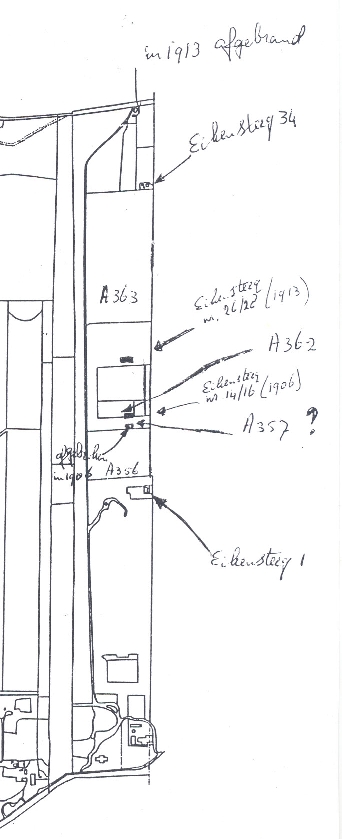 in 1913 afgebrand
Eikensteeg 34
A363
Eikensteeg
nr. 26/28 (1913)
A362
Eikensteeg
nr 14/16 (1906)
A357 ?
afgebroken
in 1906
A356
Eikensteeg 1